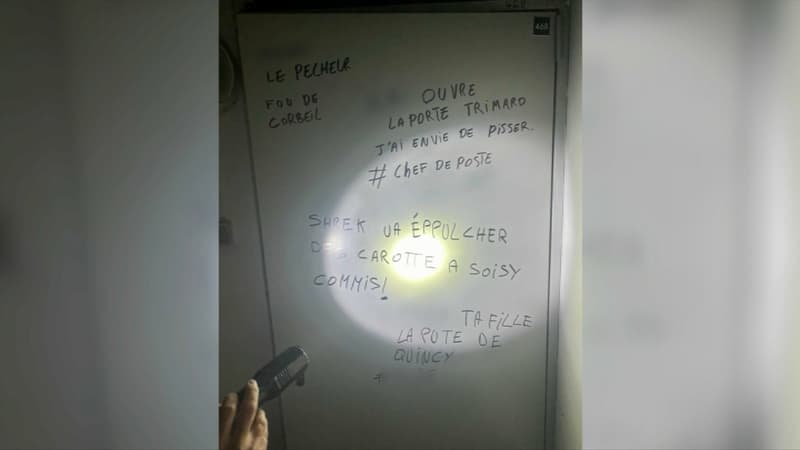 468
LE PECHEUR
FOU DE
CORBEIL
OUVRE
LA PORTE TRIMARD
J'AI ENVIE DE PISSER.
# CHEF DE POSTE
SHREK VA ÉPPULCHER
DES CAROTTE A SOISY
COMMIS!
TA FILLE
LA PUTE DE
QUINCY